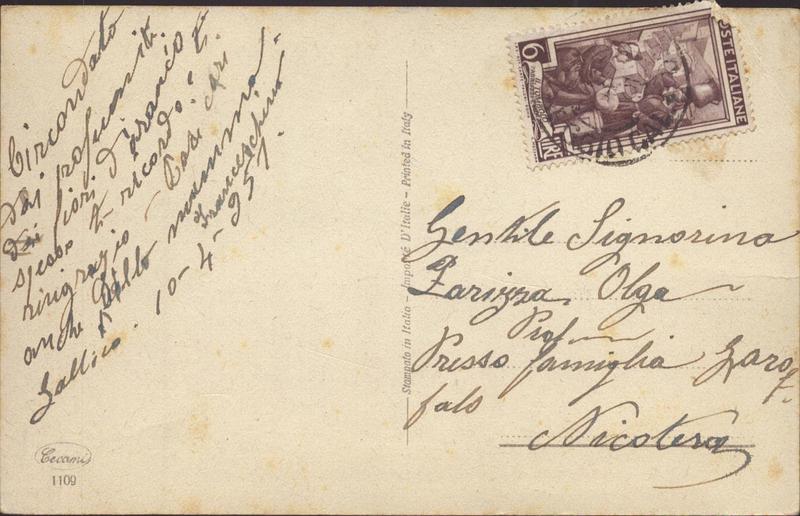 Circondato
dai profumati
dei fiori d'arancio
spesso ti ricordo, e ti
ringrazio - Baci cari
anche dalla mamma.
Franceschino
Gallico. 10-4-951.
Cecami
1109
Stampato in Italia - Importé D'Italie - Printed in Italy
6
LIRE
POSTE ITALIANE
Gentile Signorina
Zarizza Olga
Prof
Presso famiglia Garo
falo
Nicotera